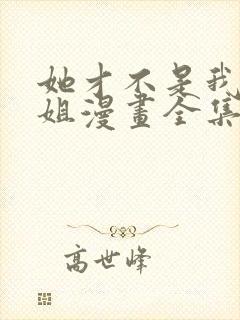 她才不是我
姐漫畫全集
高世峰